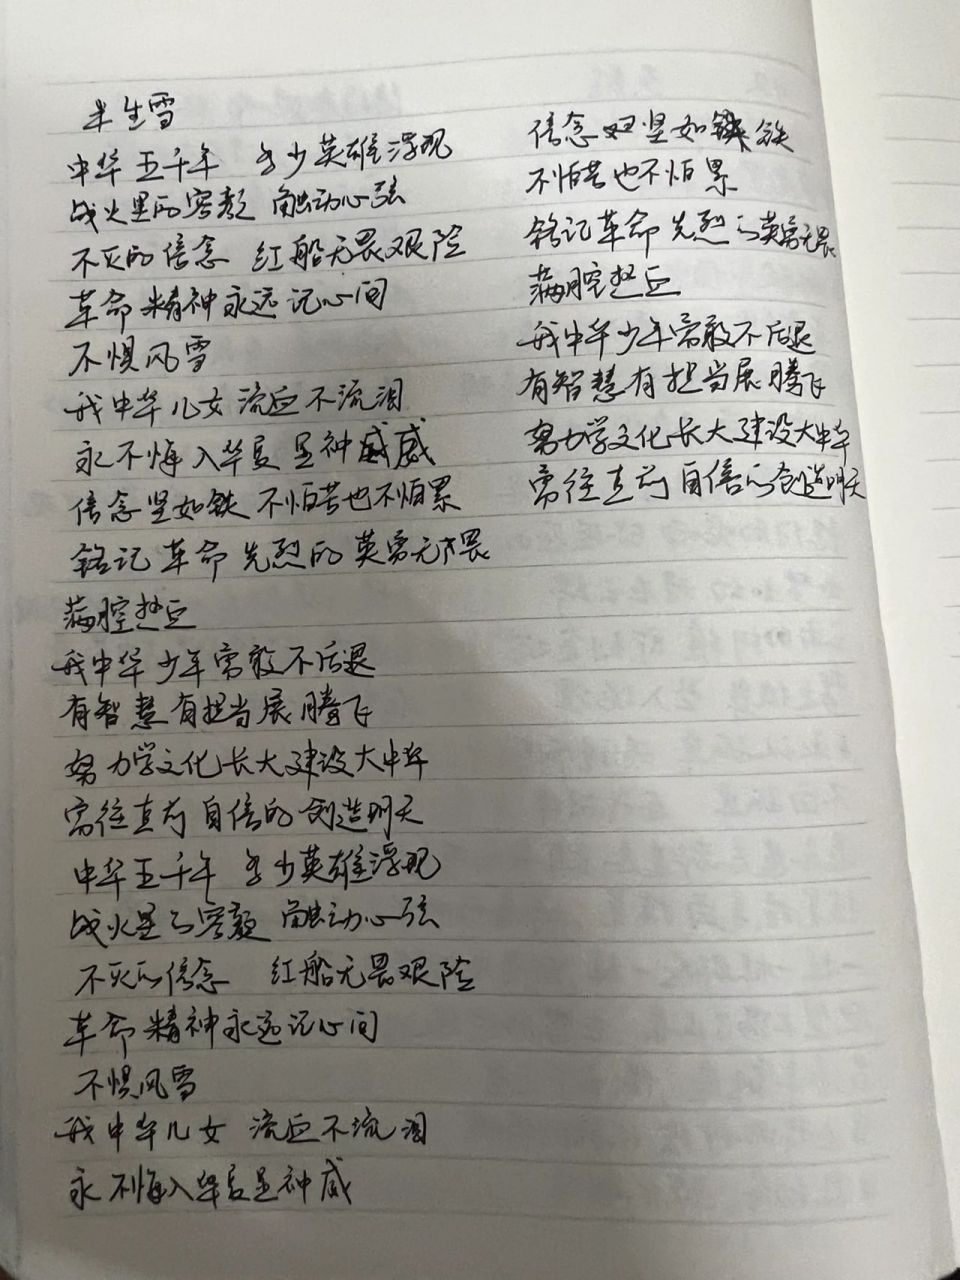 半生雪
中华五千年 多少英雄浮现
战火里的容颜 触动心弦
不灭的信念 红船无畏艰险
革命精神永远记心间
不惧风雪
我中华儿女 流血不流泪
永不悔入华夏 显神威
信念坚如铁 不怕苦也不怕累
铭记革命先烈的英勇无畏
满腔热血
我中华少年需敢不后退
有智慧有担当展腾飞
努力学文化长大建设大中华
需往直前 自信的创造明天
中华五千年 多少英雄浮现
战火里的容颜 触动心弦
不灭的信念 红船无畏艰险
革命精神永远记心间
不惧风雪
我中华儿女 流血不流泪
永不悔入华夏显神威
信念坚如铁
不怕苦也不怕累
铭记革命先烈的英勇无畏
满腔热血
我中华少年需敢不后退
有智慧有担当展腾飞
努力学文化长大建设大中华
需往直前 自信的创造明天